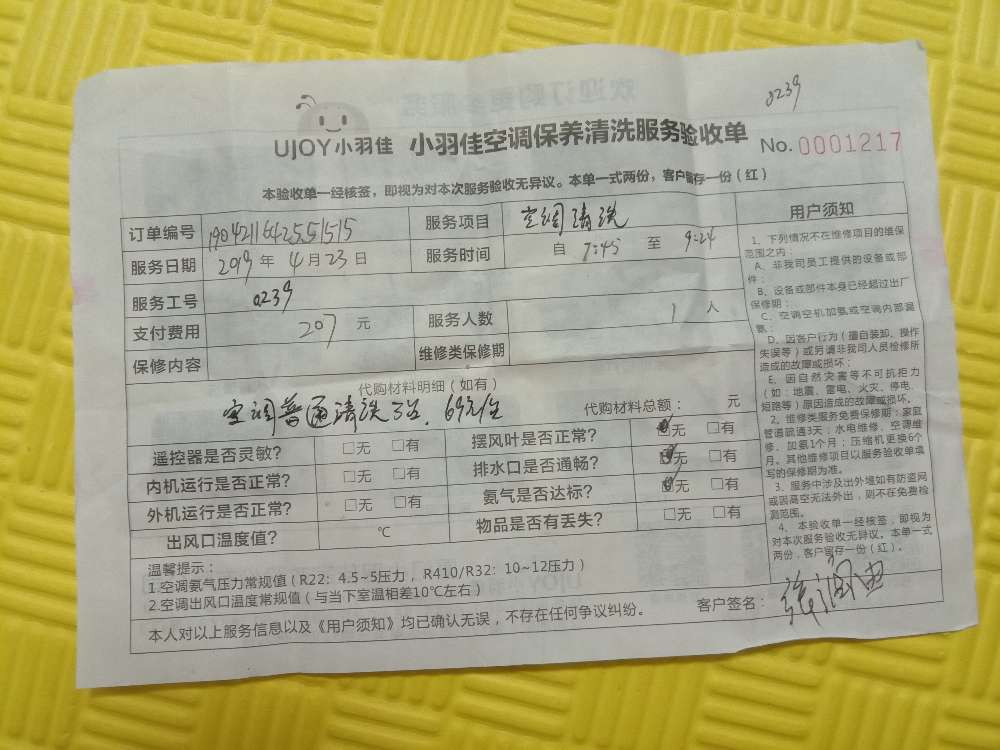 0239
UJOY小羽佳 小羽佳空调保养清洗服务验收单 No.0001217
本验收单一经核签，即视为对本次服务验收无异议。本单一式两份，客户留存一份（红）
订单编号 190421164255151​5 服务项目 空调清洗
服务日期 2019年4月23日 服务时间 自 7:45 至 9:24
服务工号 0239
支付费用 207 元 服务人数 1 人
保修内容 维修类保修期
代购材料明细（如有）
空调普通清洗3台，69元/台 代购材料总额： 元
遥控器是否灵敏？ □无 □有 摆风叶是否正常？ □无 □有
内机运行是否正常？ □无 □有 排水口是否通畅？ □无 □有
外机运行是否正常？ □无 □有 氨气是否达标？ □无 □有
出风口温度值？ ℃ 物品是否有丢失？ □无 □有
温馨提示：
1.空调氨气压力常规值（R22：4.5~5压力，R410/R32：10~12压力）
2.空调出风口温度常规值（与当下室温相差10℃左右）
本人对以上服务信息以及《用户须知》均已确认无误，不存在任何争议纠纷。
客户签名：
用户须知
1、下列情况不在维修项目的维保
范围之内：
A、非我司员工提供的设备或部
件；
B、设备或部件本身已经超过出厂
保修期；
C、空调空机加氨或空调内部漏
氨；
D、因客户行为（擅自装卸、操作
失误等）或另请非我司人员检修所
造成的故障或损坏；
E、因自然灾害等不可抗拒力
（如：地震、雷电、火灾、停电、
短路等）原因造成的故障或损坏。
2、维修类服务免费保修期：家庭
管道疏通3天；水电维修、空调维
修、加氨1个月；压缩机更换6个
月。其他维修项目以服务验收单填
写的保修期为准。
3、服务中涉及出外墙如有防盗网
或因高空无法外出，则不在免费检
测范围。
4、本验收单一经核签，即视为
对本次服务验收无异议。本单一式
两份，客户留存一份（红）。